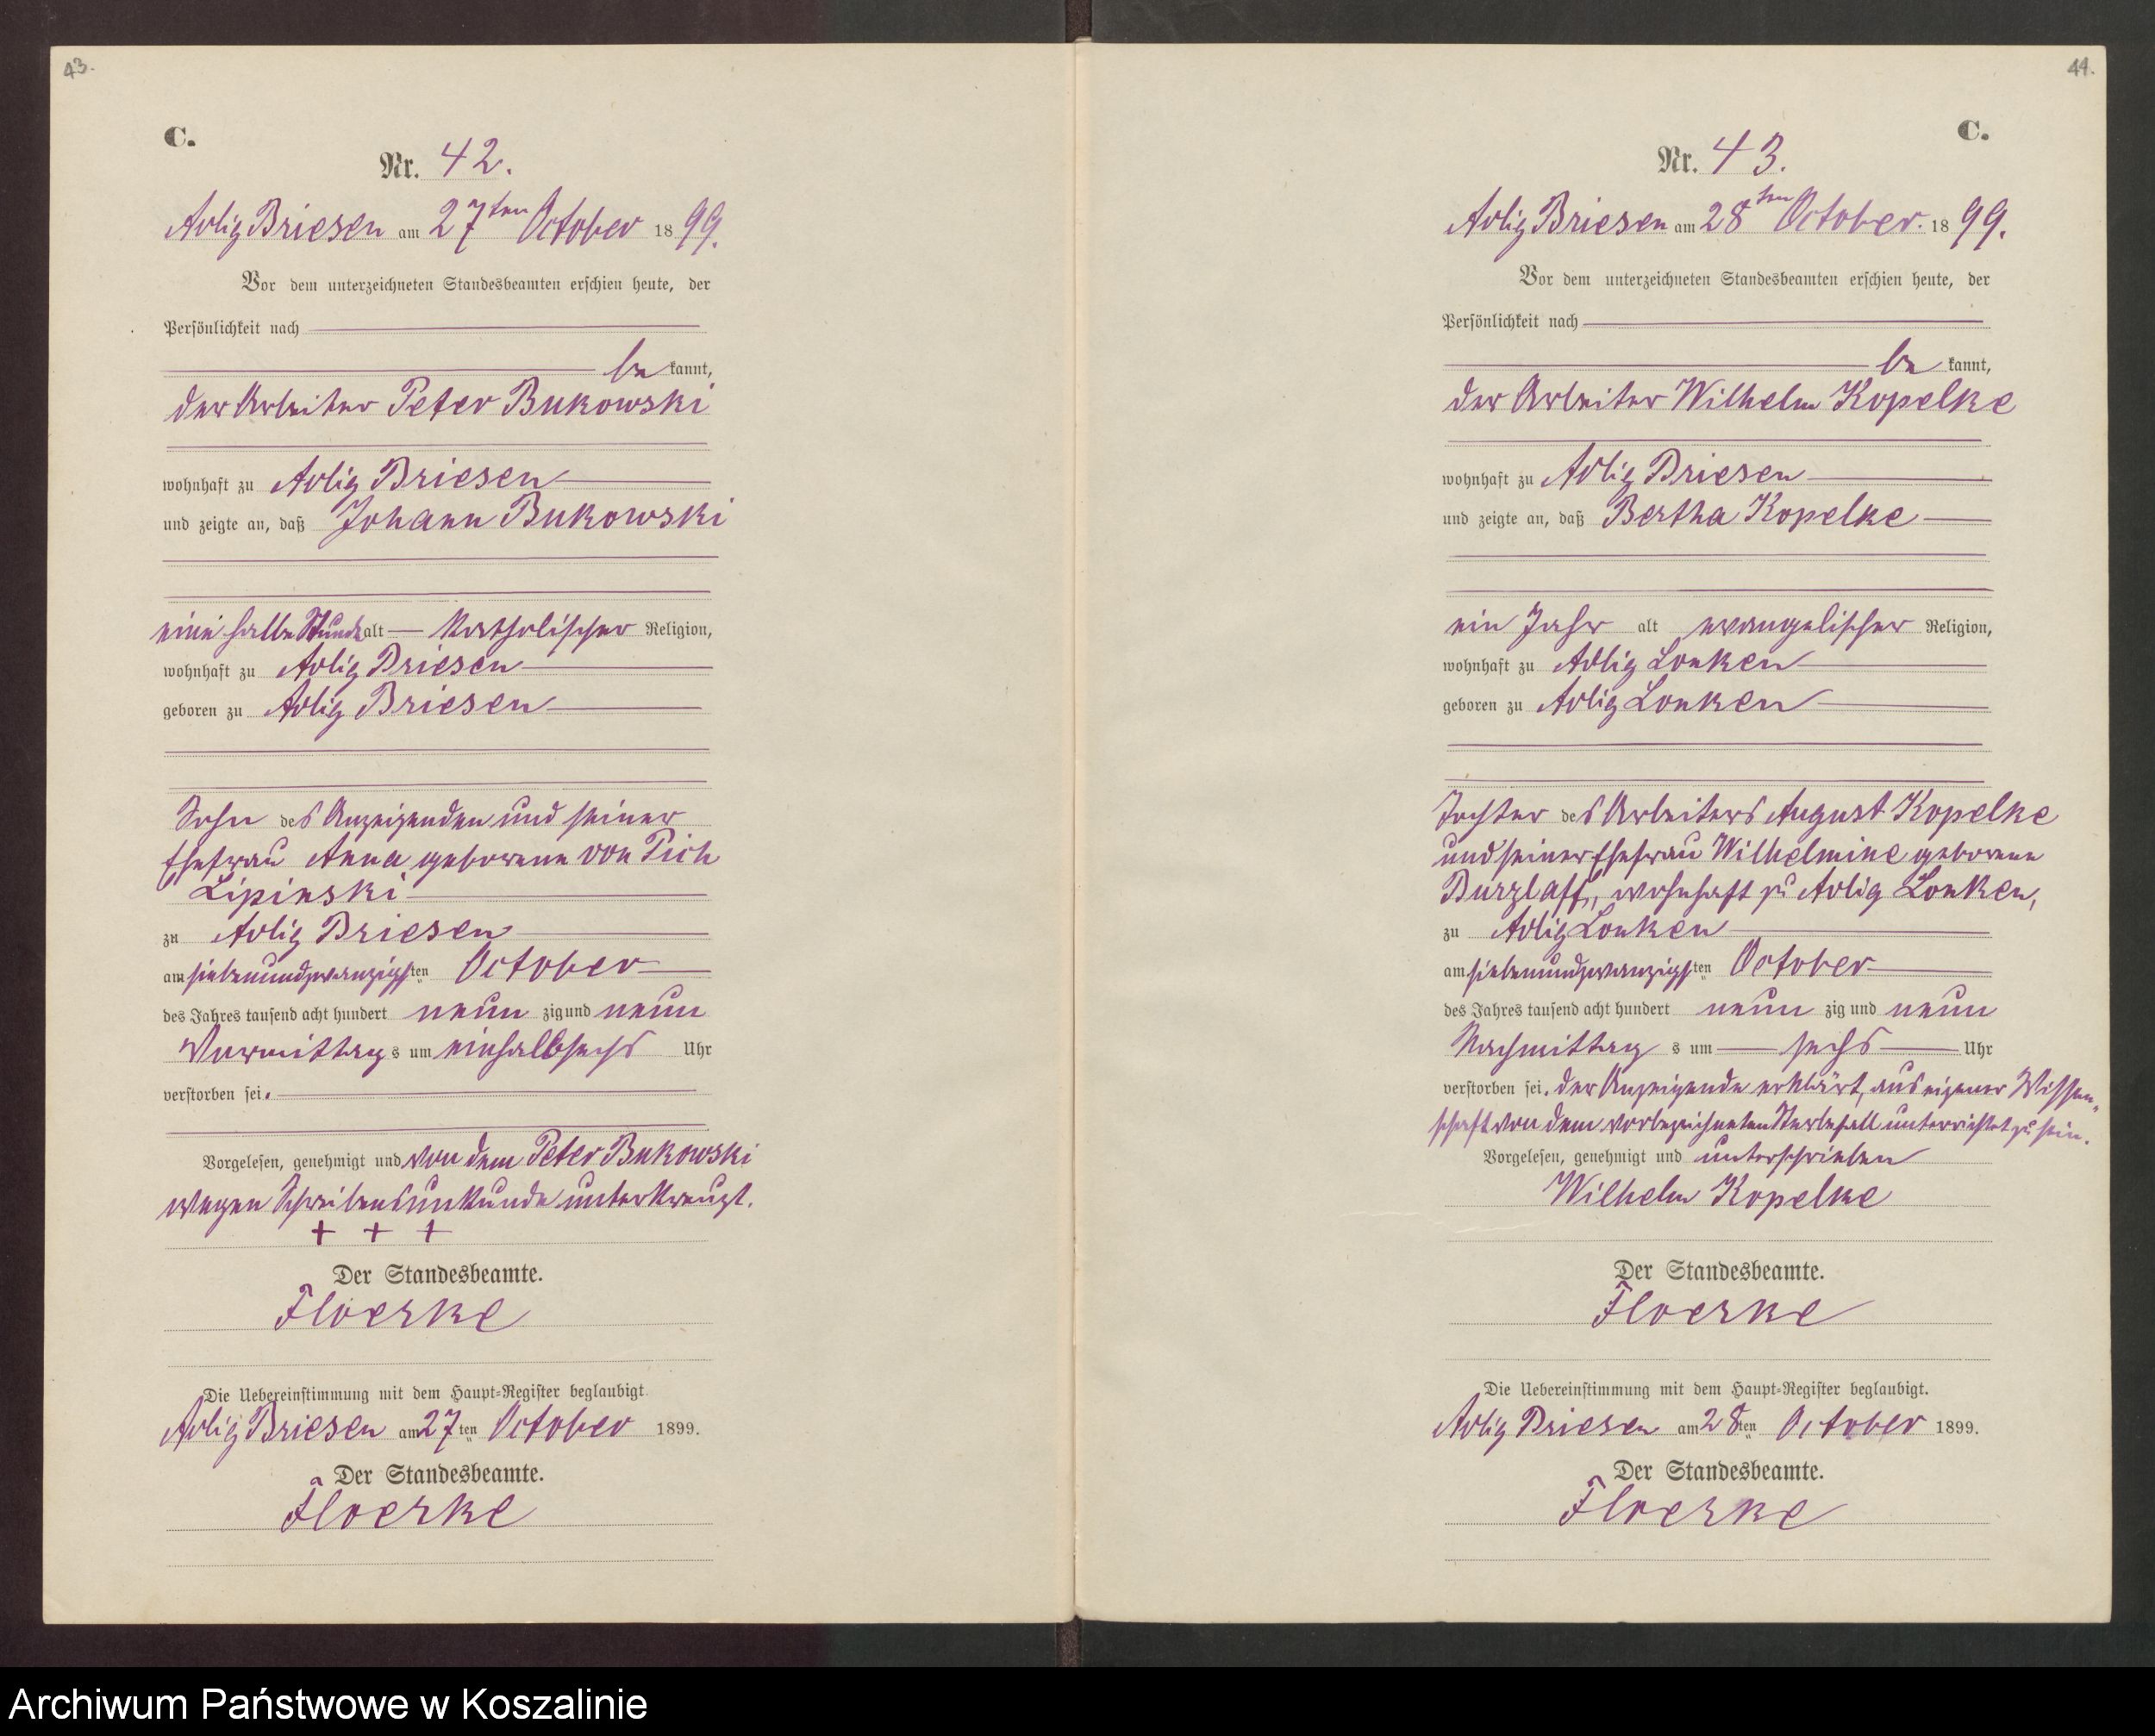 43.
C.
Nr. 42.
Adlig Briesen am 27ten October 1899.
Vor dem unterzeichneten Standesbeamten erschien heute, der
Persönlichkeit nach
be kannt,
der Arbeiter Peter Bukowski
wohnhaft zu Adlig Briesen
und zeigte an, daß Johann Bukowski
eine halbe Stunde alt — katholischer Religion,
wohnhaft zu Adlig Briesen
geboren zu Adlig Briesen
Sohn des Anzeigenden und seiner
Ehefrau Anna geborene von Pich
Lipinski
zu Adlig Briesen
am siebenundzwanzigsten October
des Jahres tausend acht hundert neun zig und neun
Vormittags um einhalbsechs Uhr
verstorben sei.
Vorgelesen, genehmigt und von dem Peter Bukowski
wegen Schreibensunkunde unterkreuzt.
+ + +
Der Standesbeamte.
Floerke
Die Uebereinstimmung mit dem Haupt-Register beglaubigt.
Adlig Briesen am 27ten October 1899.
Der Standesbeamte.
Floerke
44.
C.
Nr. 43.
Adlig Briesen am 28ten October. 1899.
Vor dem unterzeichneten Standesbeamten erschien heute, der
Persönlichkeit nach
be kannt,
der Arbeiter Wilhelm Kopelke
wohnhaft zu Adlig Briesen
und zeigte an, daß Bertha Kopelke
ein Jahr alt evangelischer Religion,
wohnhaft zu Adlig Lonken
geboren zu Adlig Lonken
Tochter des Arbeiters August Kopelke
und seiner Ehefrau Wilhelmine geborene
Burzlaff, wohnhaft zu Adlig Lonken,
zu Adlig Lonken
am siebenundzwanzigsten October
des Jahres tausend acht hundert neun zig und neun
Nachmittags um — sechs — Uhr
verstorben sei. Der Anzeigende erklärt, aus eigener Wissen-
schaft von dem vorbezeichneten Sterbefall unterrichtet zu sein.
Vorgelesen, genehmigt und unterschrieben
Wilhelm Kopelke
Der Standesbeamte.
Floerke
Die Uebereinstimmung mit dem Haupt-Register beglaubigt.
Adlig Briesen am 28ten October 1899.
Der Standesbeamte.
Floerke
Archiwum Państwowe w Koszalinie